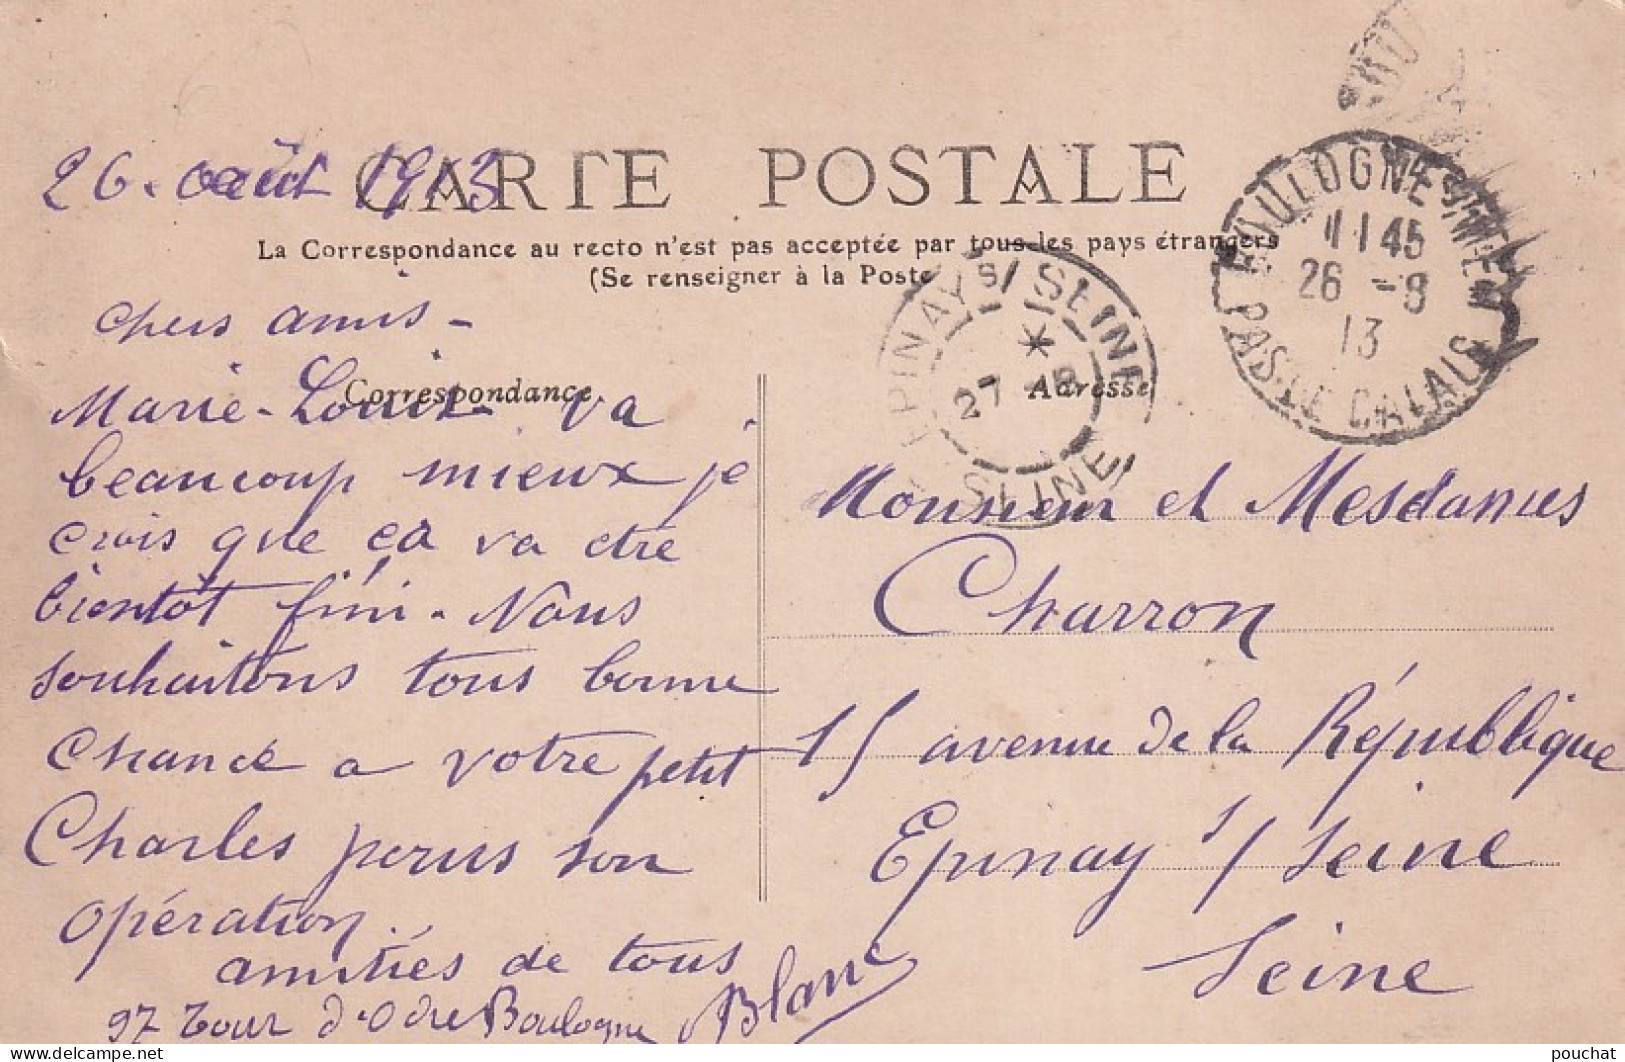 CARTE POSTALE
26. août 1913
La Correspondance au recto n'est pas acceptée par tous les pays étrangers
(Se renseigner à la Poste
BOULOGNE-S-MER
11 45
26 -8
13
PAS-DE-CALAIS
EPINAY S/ SEINE
27 -8
SEINE
Correspondance
Adresse
chers amis -
Marie-Louise va
beaucoup mieux je
crois que ca va etre
bientôt fini - Nous
souhaitons tous bonne
chance a votre petit
Charles pour son
opération
amitiés de tous
Blanc
97 Tour d'Odre Boulogne
Monsieur et Mesdames
Charron
15 avenue de la République
Epinay s/ Seine
Seine
pouchat